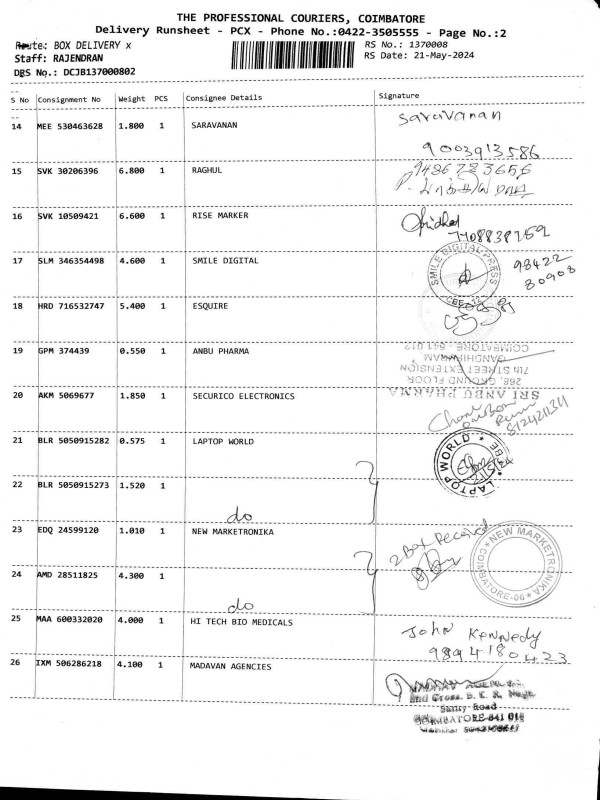 THE PROFESSIONAL COURIERS, COIMBATORE
Delivery Runsheet - PCX - Phone No.:0422-3505555 - Page No.:2
Route: BOX DELIVERY x
RS No.: 1370008
Staff: RAJENDRAN
RS Date: 21-May-2024
DRS No.: DCJB137000802
S No Consignment No Weight PCS Consignee Details Signature
14 MEE 530463628 1.800 1 SARAVANAN Saravanan
9003913586
15 SVK 30206396 6.800 1 RAGHUL
16 SVK 10509421 6.600 1 RISE MARKER
17 SLM 346354498 4.600 1 SMILE DIGITAL SMILE DIGITAL PRESS
98422
80908
18 HRD 716532747 5.400 1 ESQUIRE
19 GPM 374439 0.550 1 ANBU PHARMA
SRI ANBU PHARMA
268, GROUND FLOOR
7th STREET EXTENSION
GANDHIPURAM
COIMBATORE - 641 012
20 AKM 5069677 1.850 1 SECURICO ELECTRONICS
21 BLR 5050915282 0.575 1 LAPTOP WORLD LAPTOP WORLD CBE
22 BLR 5050915273 1.520 1
do
23 EDQ 24599120 1.010 1 NEW MARKETRONIKA 2 Box Received
NEW MARKETRONIKA COIMBATORE-06
24 AMD 28511825 4.300 1
do
25 MAA 600332020 4.000 1 HI TECH BIO MEDICALS John Kennedy
9894180423
26 IXM 506286218 4.100 1 MADAVAN AGENCIES